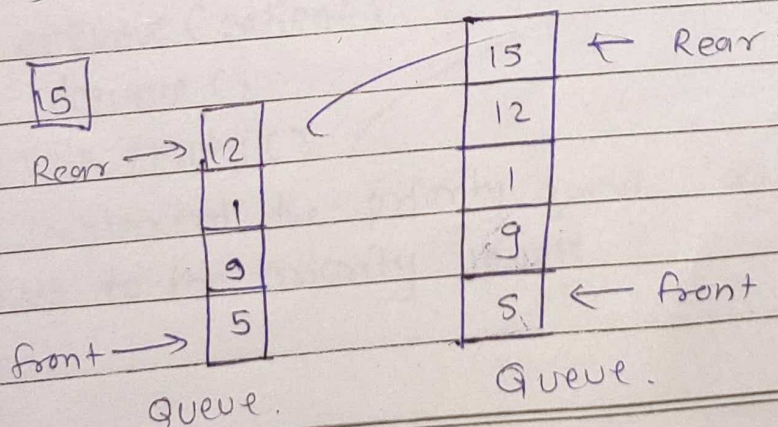 15
Rear
12
1
9
5
front
Queue.
15
Rear
12
1
9
5
front
Queue.